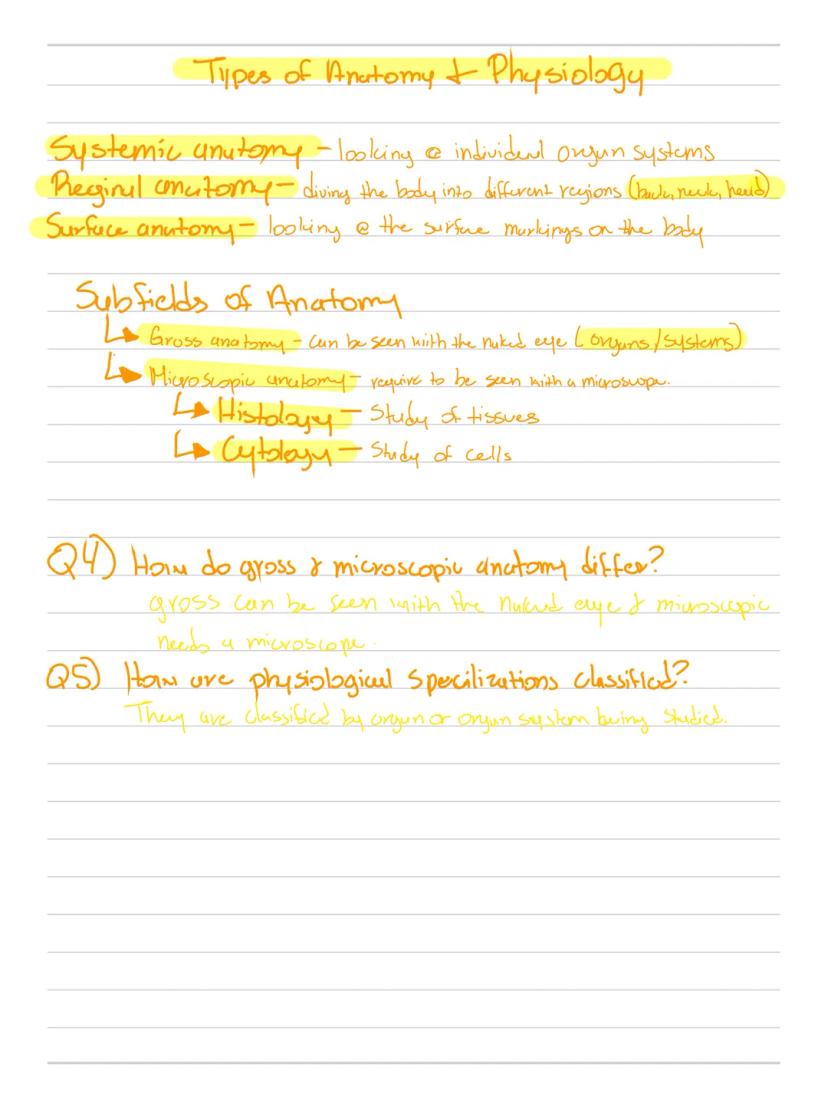 Types of Anatomy & Physiology
Systemic anatomy - looking @ individual organ systems
Reginal anatomy - diving the body into different regions (back, neck, head)
Surface anatomy - looking @ the surface markings on the body
Subfields of Anatomy
Gross anatomy - can be seen with the naked eye (organs/systems)
Microscopic anatomy - require to be seen with a microscope.
Histology - Study of tissues
Cytology - Study of cells
Q4) How do gross & microscopic anatomy differ?
gross can be seen with the naked eye & microscopic
needs a microscope.
Q5) How are physiological specilizations classified?
They are classified by organ or organ system being studied.